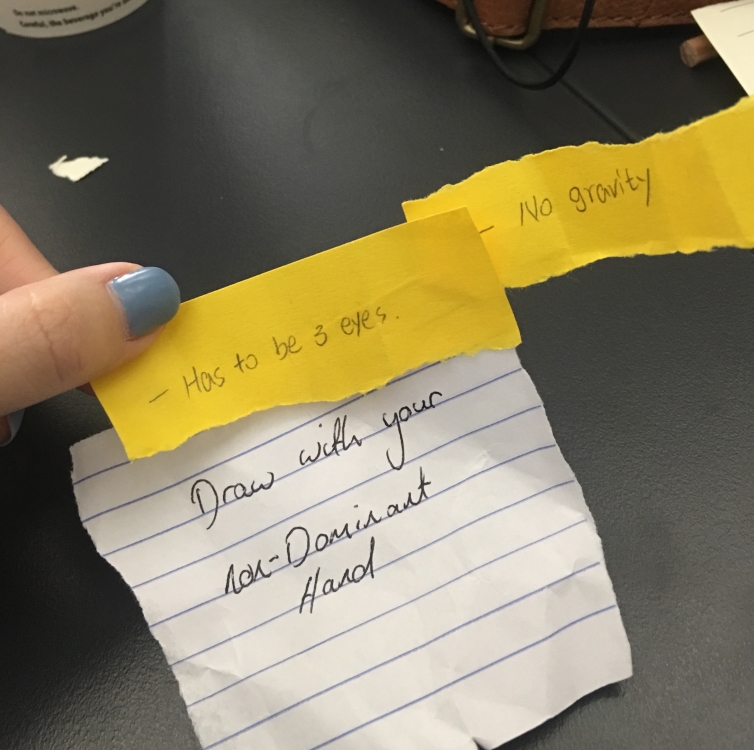 Do not microwave.
Careful, the beverage you're
- No gravity
- Has to be 3 eyes.
Draw with your
non-Dominant
Hand